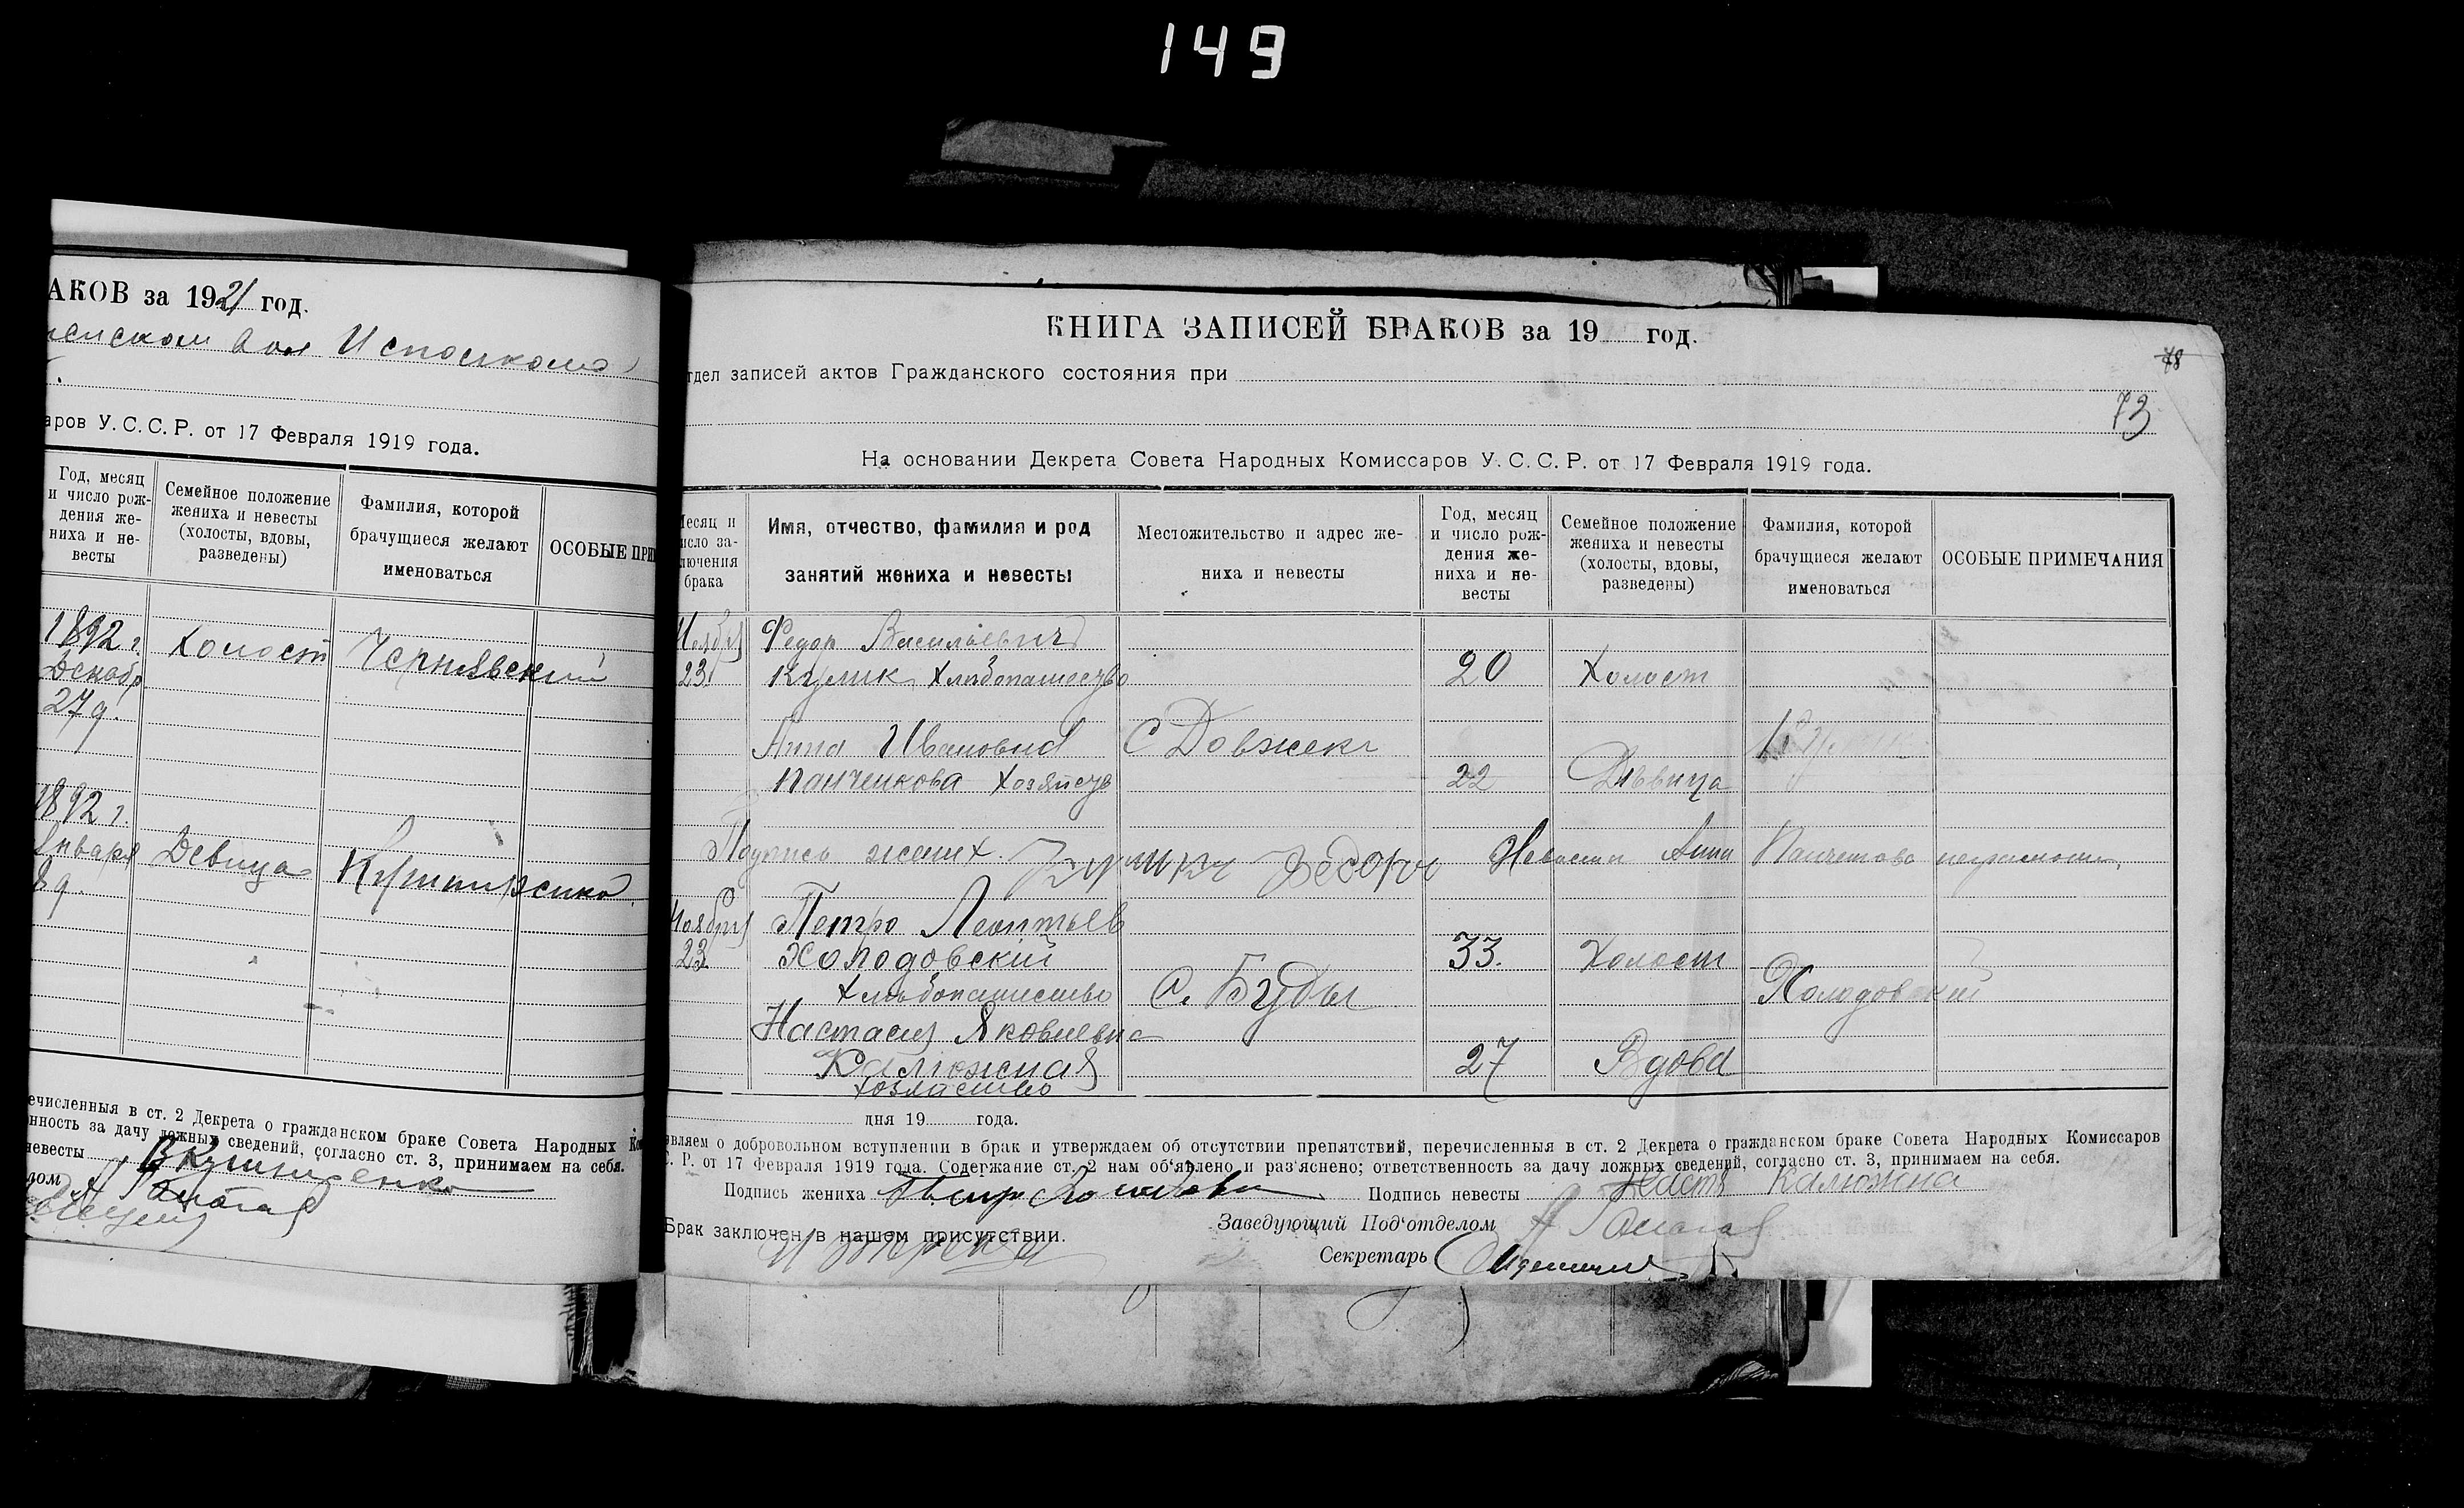 149
АКОВ за 1921 год.
Исполкома
аров У. С. С. Р. от 17 Февраля 1919 года.
Год, месяц и число рож-дения же-ниха и не-весты
Семейное положение жениха и невесты (холосты, вдовы, разведены)
Фамилия, которой брачущиеся желают именоваться
ОСОБЫЕ ПРИ
1892 г. Холост Чернявский
Декабр
27 д.
1892 г.
Января Девица
8 д.
ечисленныя в ст. 2 Декрета о гражданском браке Совета Народных Ко
нность за дачу ложных сведений, согласно ст. 3, принимаем на себя.
невесты
КНИГА ЗАПИСЕЙ БРАКОВ за 19 год.
78
тдел записей актов Гражданского состояния при
73
На основании Декрета Совета Народных Комиссаров У. С. С. Р. от 17 Февраля 1919 года.
Месяц и исло за-лючения брака
Имя, отчество, фамилия и род занятий жениха и невесты
Местожительство и адрес же-ниха и невесты
Год, месяц и число рож-дения же-ниха и не-весты
Семейное положение жениха и невесты (холосты, вдовы, разведены)
Фамилия, которой брачущиеся желают именоваться
ОСОБЫЕ ПРИМЕЧАНИЯ
Ноября Федор Васильевич
23 Кулик Хлебопашество 20 Холост
Анна Ивановна С Довжек Кулик
Панченкова Хозяйств 22 Дивица
Подпись жених. Кулик Федор Невесты Анна
Ноября Петро Леонтьев
23 Холодовский 33. Холост
Хлебопашество С. Буды Холодовский
Настасия Яковлевна
Калюжная 27 Вдова
хозяйство
дня 19 года.
являем о добровольном вступлении в брак и утверждаем об отсутствии препятствий, перечисленныя в ст. 2 Декрета о гражданском браке Совета Народных Комиссаров
С. Р. от 17 Февраля 1919 года. Содержание ст. 2 нам об'явлено и раз'яснено; ответственность за дачу ложных сведений, согласно ст. 3, принимаем на себя.
Подпись жениха Подпись невесты Настя Калюжна
Брак заключен в нашем присутствии. Заведующий Под'отделом
Секретарь